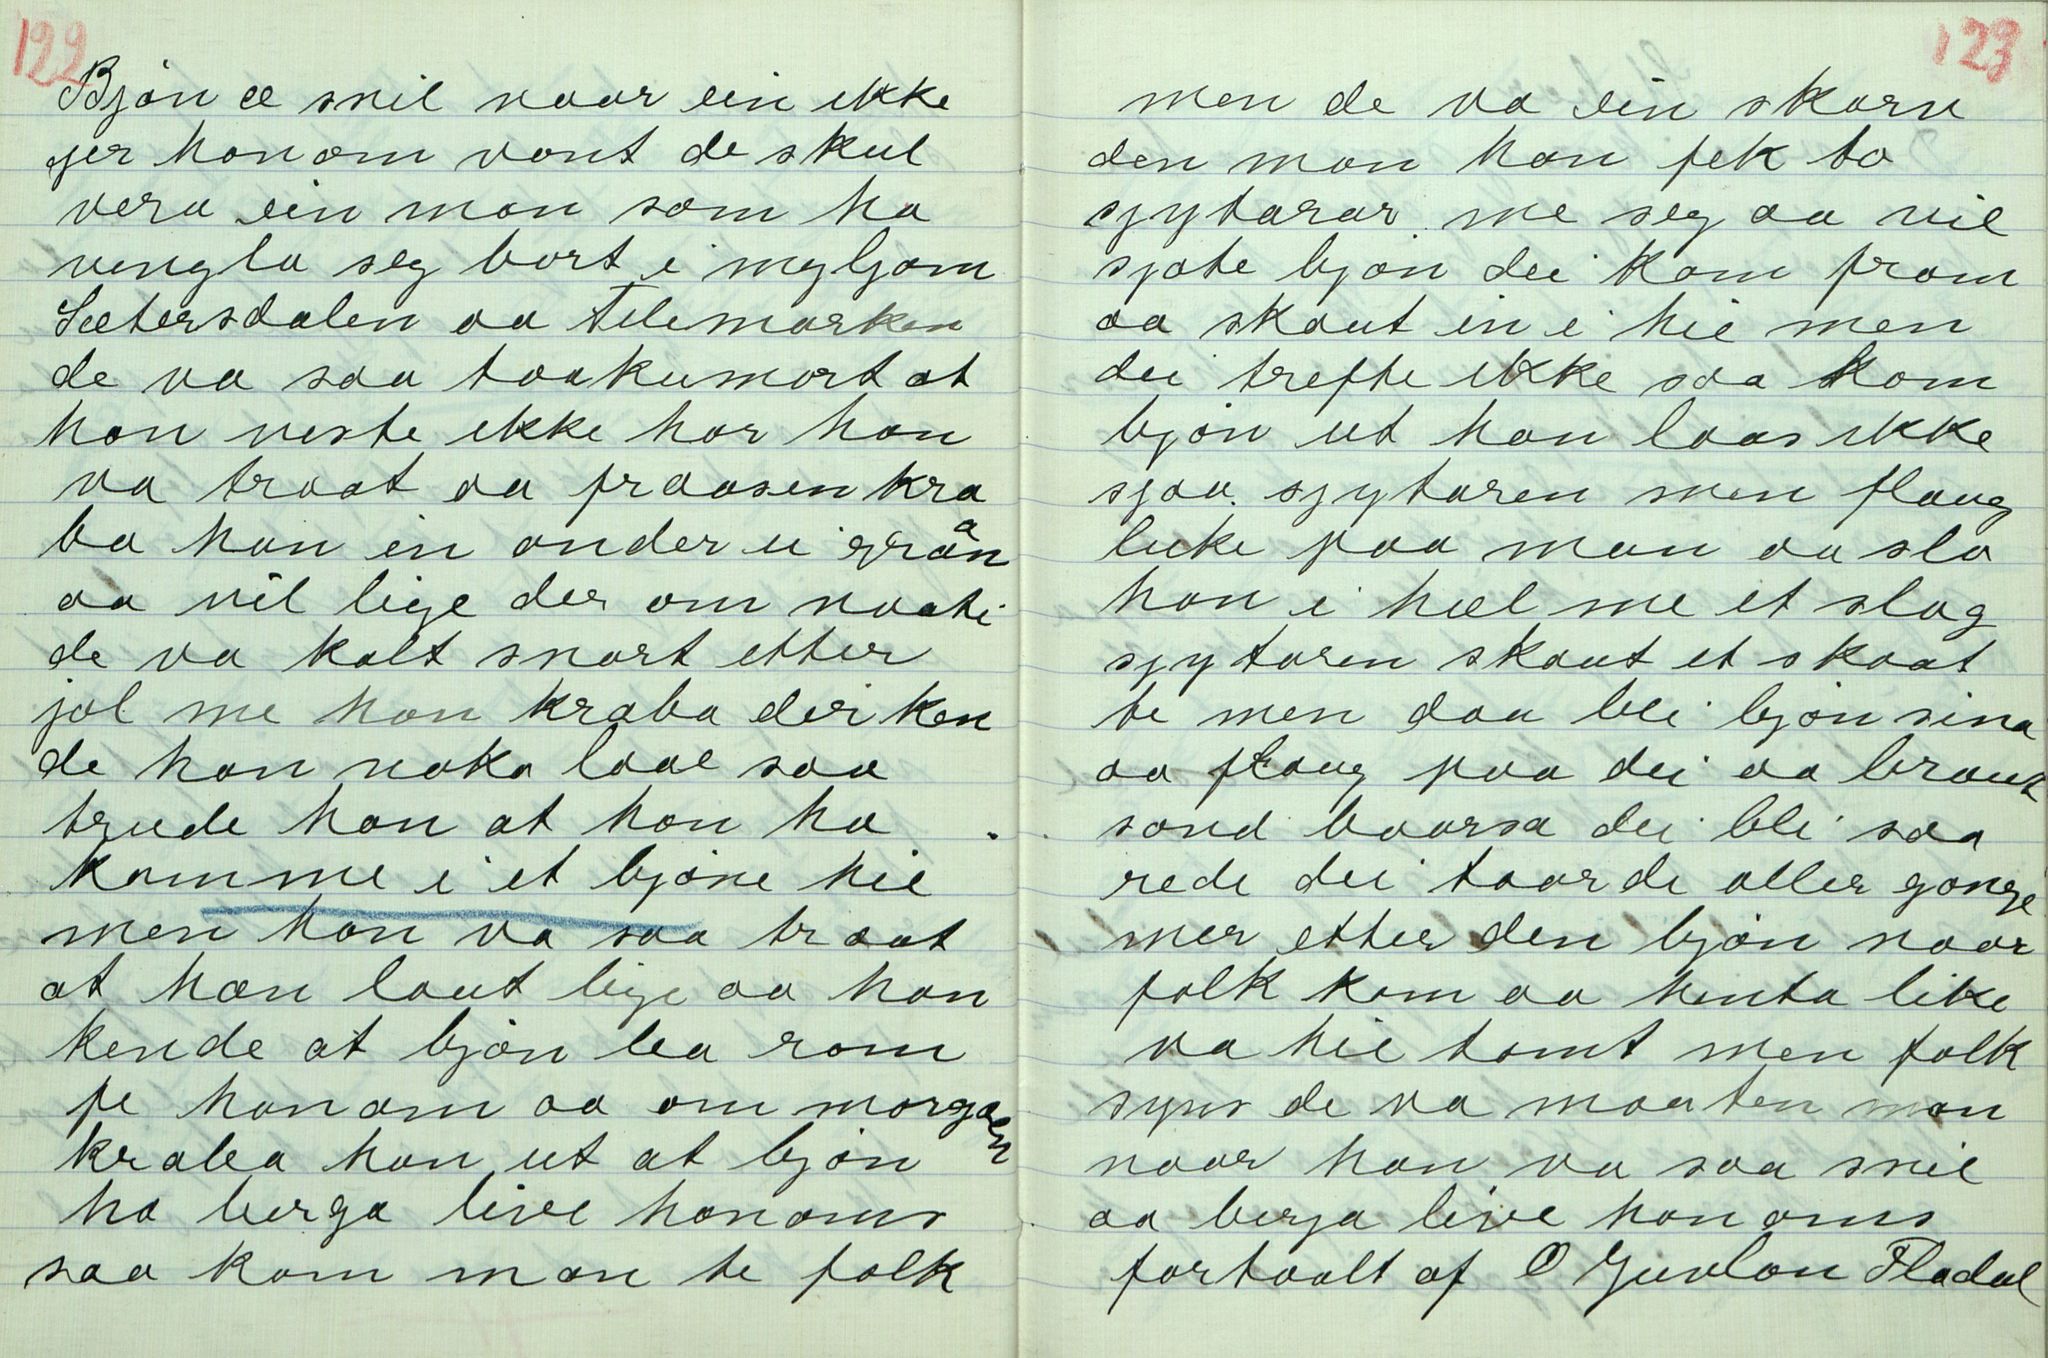 122
Bjøn æ snil naar ein ikke
jer honom vont de skul
vera ein mon som ha
vengla seg bort i myljom
Sætersdalen aa Telemarken
de va saa taakumort at
hon veste ikke hor hon
va traat aa fraasen kra
ba hon in onder ei gran
aa vil lige der om naati
de va kalt snart etter
jol me hon kraba der ken
de hon noko laat saa
trude hon at hon ha
komme i et bjøne hie
men hon va saa traat
at hon laut lige aa hon
kende at bjøn lea rom
fe honom aa om morgoen
kraba hon ut at bjøn
ha berga live honoms
saa kom mon te folk
123
men de va ein skarv
den mon hon fek to
sjytarar me seg aa vil
sjote bjøn dei kom from
aa skaut in i hie men
dei trefte ikke saa kom
bjøn ut hon laas ikke
sjaa sjytaren men flaug
beke paa mon aa slo
hon i hæl me et slag
sjytaren skaut et skaat
te men daa blei bjøn sina
aa flaug paa dei aa brauk
sond baarsa dei blei saa
rede dei taarde aller gonge
mer etter den bjøn naar
folk kom aa henta like
va hie tomt men folk
syns de va maaten mon
naar hon va saa snil
aa berja live honoms
fortaalt af O Gjuvlon Fladal